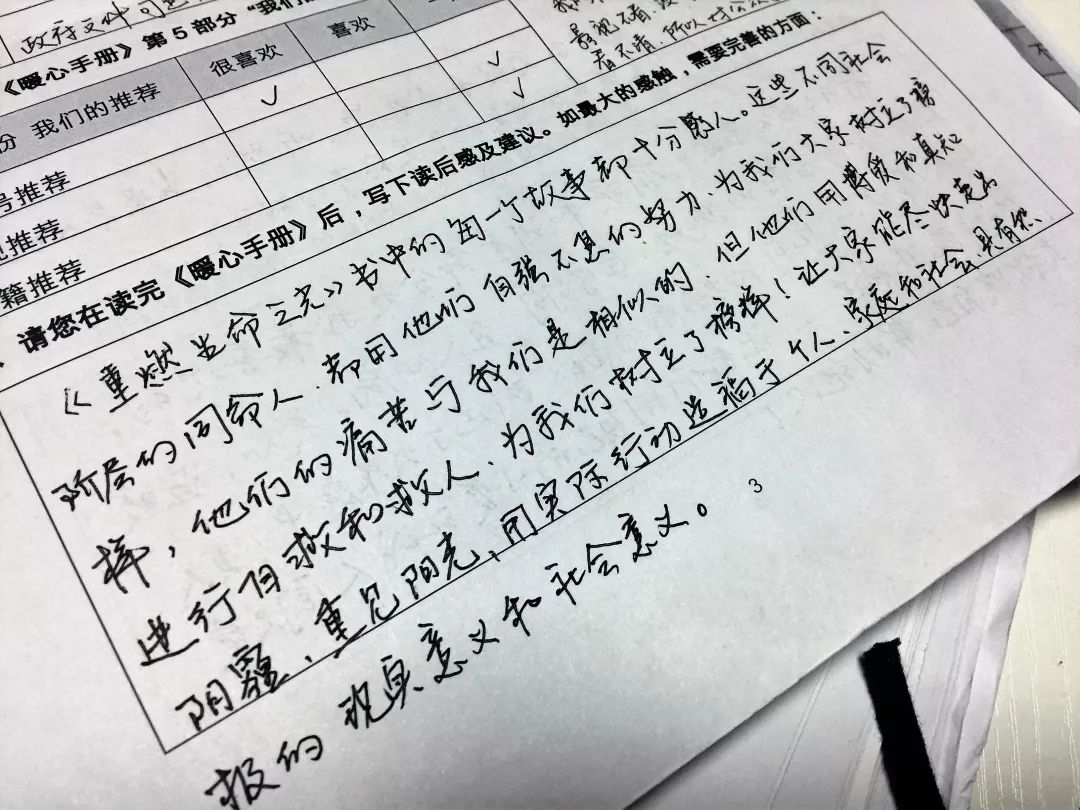 政府文件
《暖心手册》第5部分“我们
很喜欢 喜欢
份 我们的推荐 ✓
号推荐 ✓
推荐 ✓
籍推荐
看不清，所以
请您在读完《暖心手册》后，写下读后感及建议。如最大的感触，需要完善的方面：
《重燃生命之光》书中的每一个故事都十分感人。这些不同社会
阶层的同命人，都用他们自强不息的努力，为我们大家树立了榜
样，他们的痛苦与我们是相似的，但他们用博爱和真知
进行自救和救人，为我们树立了榜样！让大家能尽快走出
阴霾，重见阳光，用实际行动造福于个人、家庭和社会，具有
报的现真意义和社会意义。
3